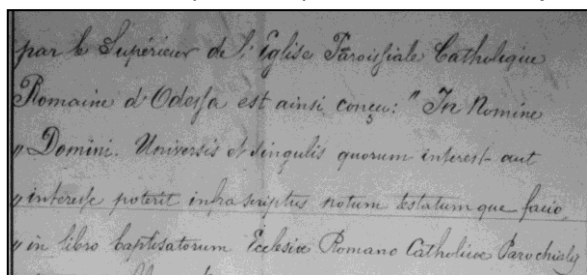 par le Supérieur de l'Eglise Paroissiale Catholique
Romaine d'Odessa est ainsi conçu: "In Nomine
" Domini. Universis et singulis quorum interest aut
" interesse poterit infrascriptus notum testatumque facio,
" in libro baptesatorum Ecclesiæ Romano Catholicæ Parochialis